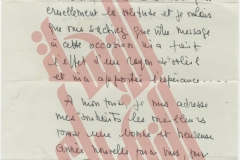 cruellement la solitude et je voulais
que vous sachiez que votre message
à cette occasion m'a fait
l'effet d'un rayon de soleil
et m'a apporté l'espérance
A mon tour, je vous adresse
mes souhaits les meilleurs
pour une bonne et heureuse
année nouvelle pour vous